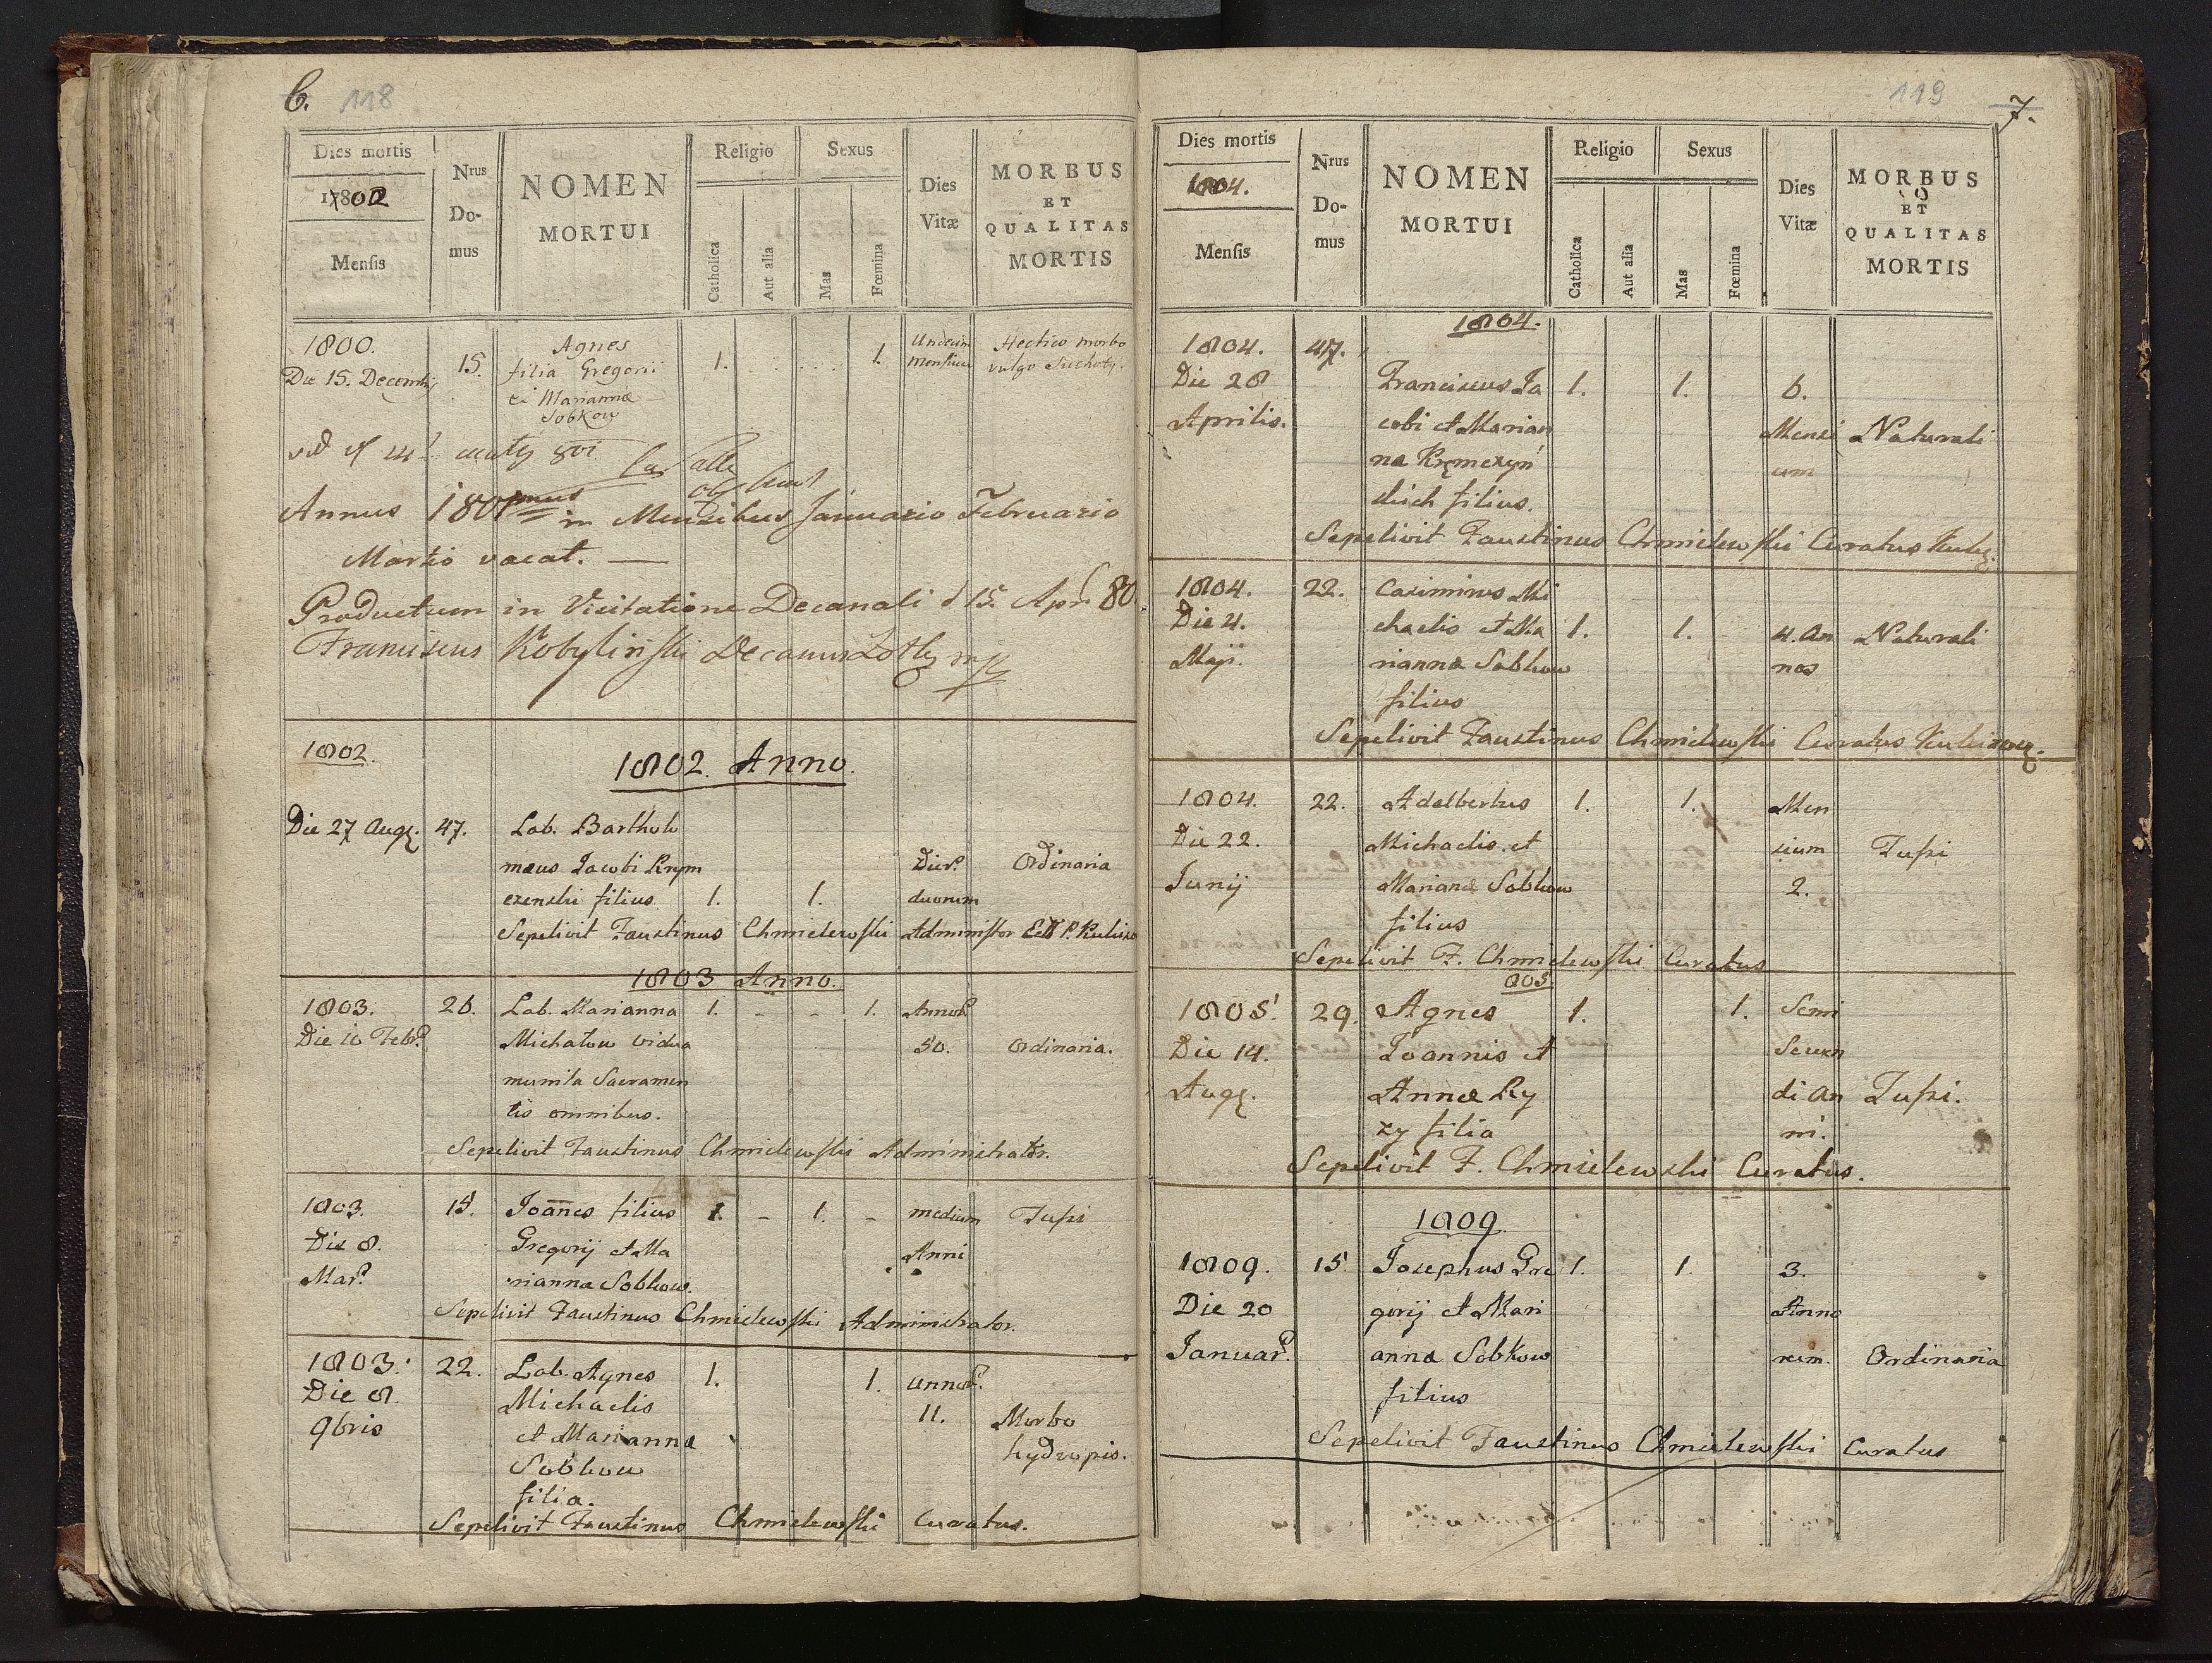 6. 118
Dies mortis
1802
Mensis
Nrus Domus
NOMEN MORTUI
Religio
Catholica
Aut alia
Sexus
Mas
Fœmina
Dies Vitæ
MORBUS ET QUALITAS MORTIS
1800. 15. Agnes 1. 1. Undecim Hectico morbo
Die 15. Decembris filia Gregorii Mensium vulgo Suchoty.
et Mariannæ
Sobkow
Annus 1801mus in Mensibus Januario Februario
Martio vacat.
Productum in Visitatione Decanali d 15 Apr 80
Franciscus Kobyliński Decanus
1802.
1802. Anno.
Die 27 Aug. 47. Lab. Bartholo
mæus Jacobi Krym Dier. Ordinaria
czenski filius 1. 1. duorum
Sepelivit Faustinus Chmielewski Administor
1803 Anno.
1803. 26. Lab. Marianna 1. - - 1. Annor.
Die 10 Febr. Michałow vidua 50. Ordinaria.
munita Sacramen
tis omnibus.
Sepelivit Faustinus Chmielewski Administrator.
1803. 15. Joannes filius 1. - 1. - medium Tussi
Die 8. Gregorij et Ma Anni
Mar. rianna Sobkow.
Sepelivit Faustinus Chmielewski Administrator.
1803. 22. Lab. Agnes 1. 1. annor.
Die 8. Michaelis 11. Morbo
9bris et Marianna hydropis.
Sobkow
filia.
Sepelivit Faustinus Chmielewski Curatus.
119 7.
Dies mortis
1804.
Mensis
Nrus Domus
NOMEN MORTUI
Religio
Catholica
Aut alia
Sexus
Mas
Fœmina
Dies Vitæ
MORBUS ET QUALITAS MORTIS
1804.
1804. 47.
Die 28 Franciscus Ja 1. 1. 6.
Aprilis. cobi et Marian Mensi Naturali
na Krymczyn um
skich filius.
Sepelivit Faustinus Chmielewski Curatus
1804. 22. Casimirus Mi
Die 4. chaelis et Ma 1. 1. 4. An Naturali
Maji. rianna Sobkow nos
filius
Sepelivit Faustinus Chmielewski Curatus
1804. 22. Adalbertus 1. 1. Men
Die 22. Michaelis et sium Tussi
Junij Marianæ Sobkow 2.
filius
Sepelivit F. Chmielewski Curatus
805.
1805. 29. Agnes 1. 1. Semi
Die 14. Joannis et Secun
Aug. Annæ Ry di An Tussi.
zy filia ni.
Sepelivit F. Chmielewski Curatus.
1809
1809. 15. Josephus Gre 1. 1. 3.
Die 20 gorij et Mari Anno
Januar. anna Sobkow rum. Ordinaria
filius
Sepelivit Faustinus Chmielewski Curatus